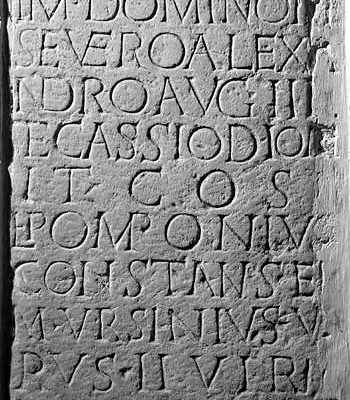 IM·DOMINO
SEVEROALEX
NDROAVGIII
ECASSIODIO
IT COS
LPOMPONIV
CONSTANSE
M·VRSINIVS·V
RVS·IIVIRI